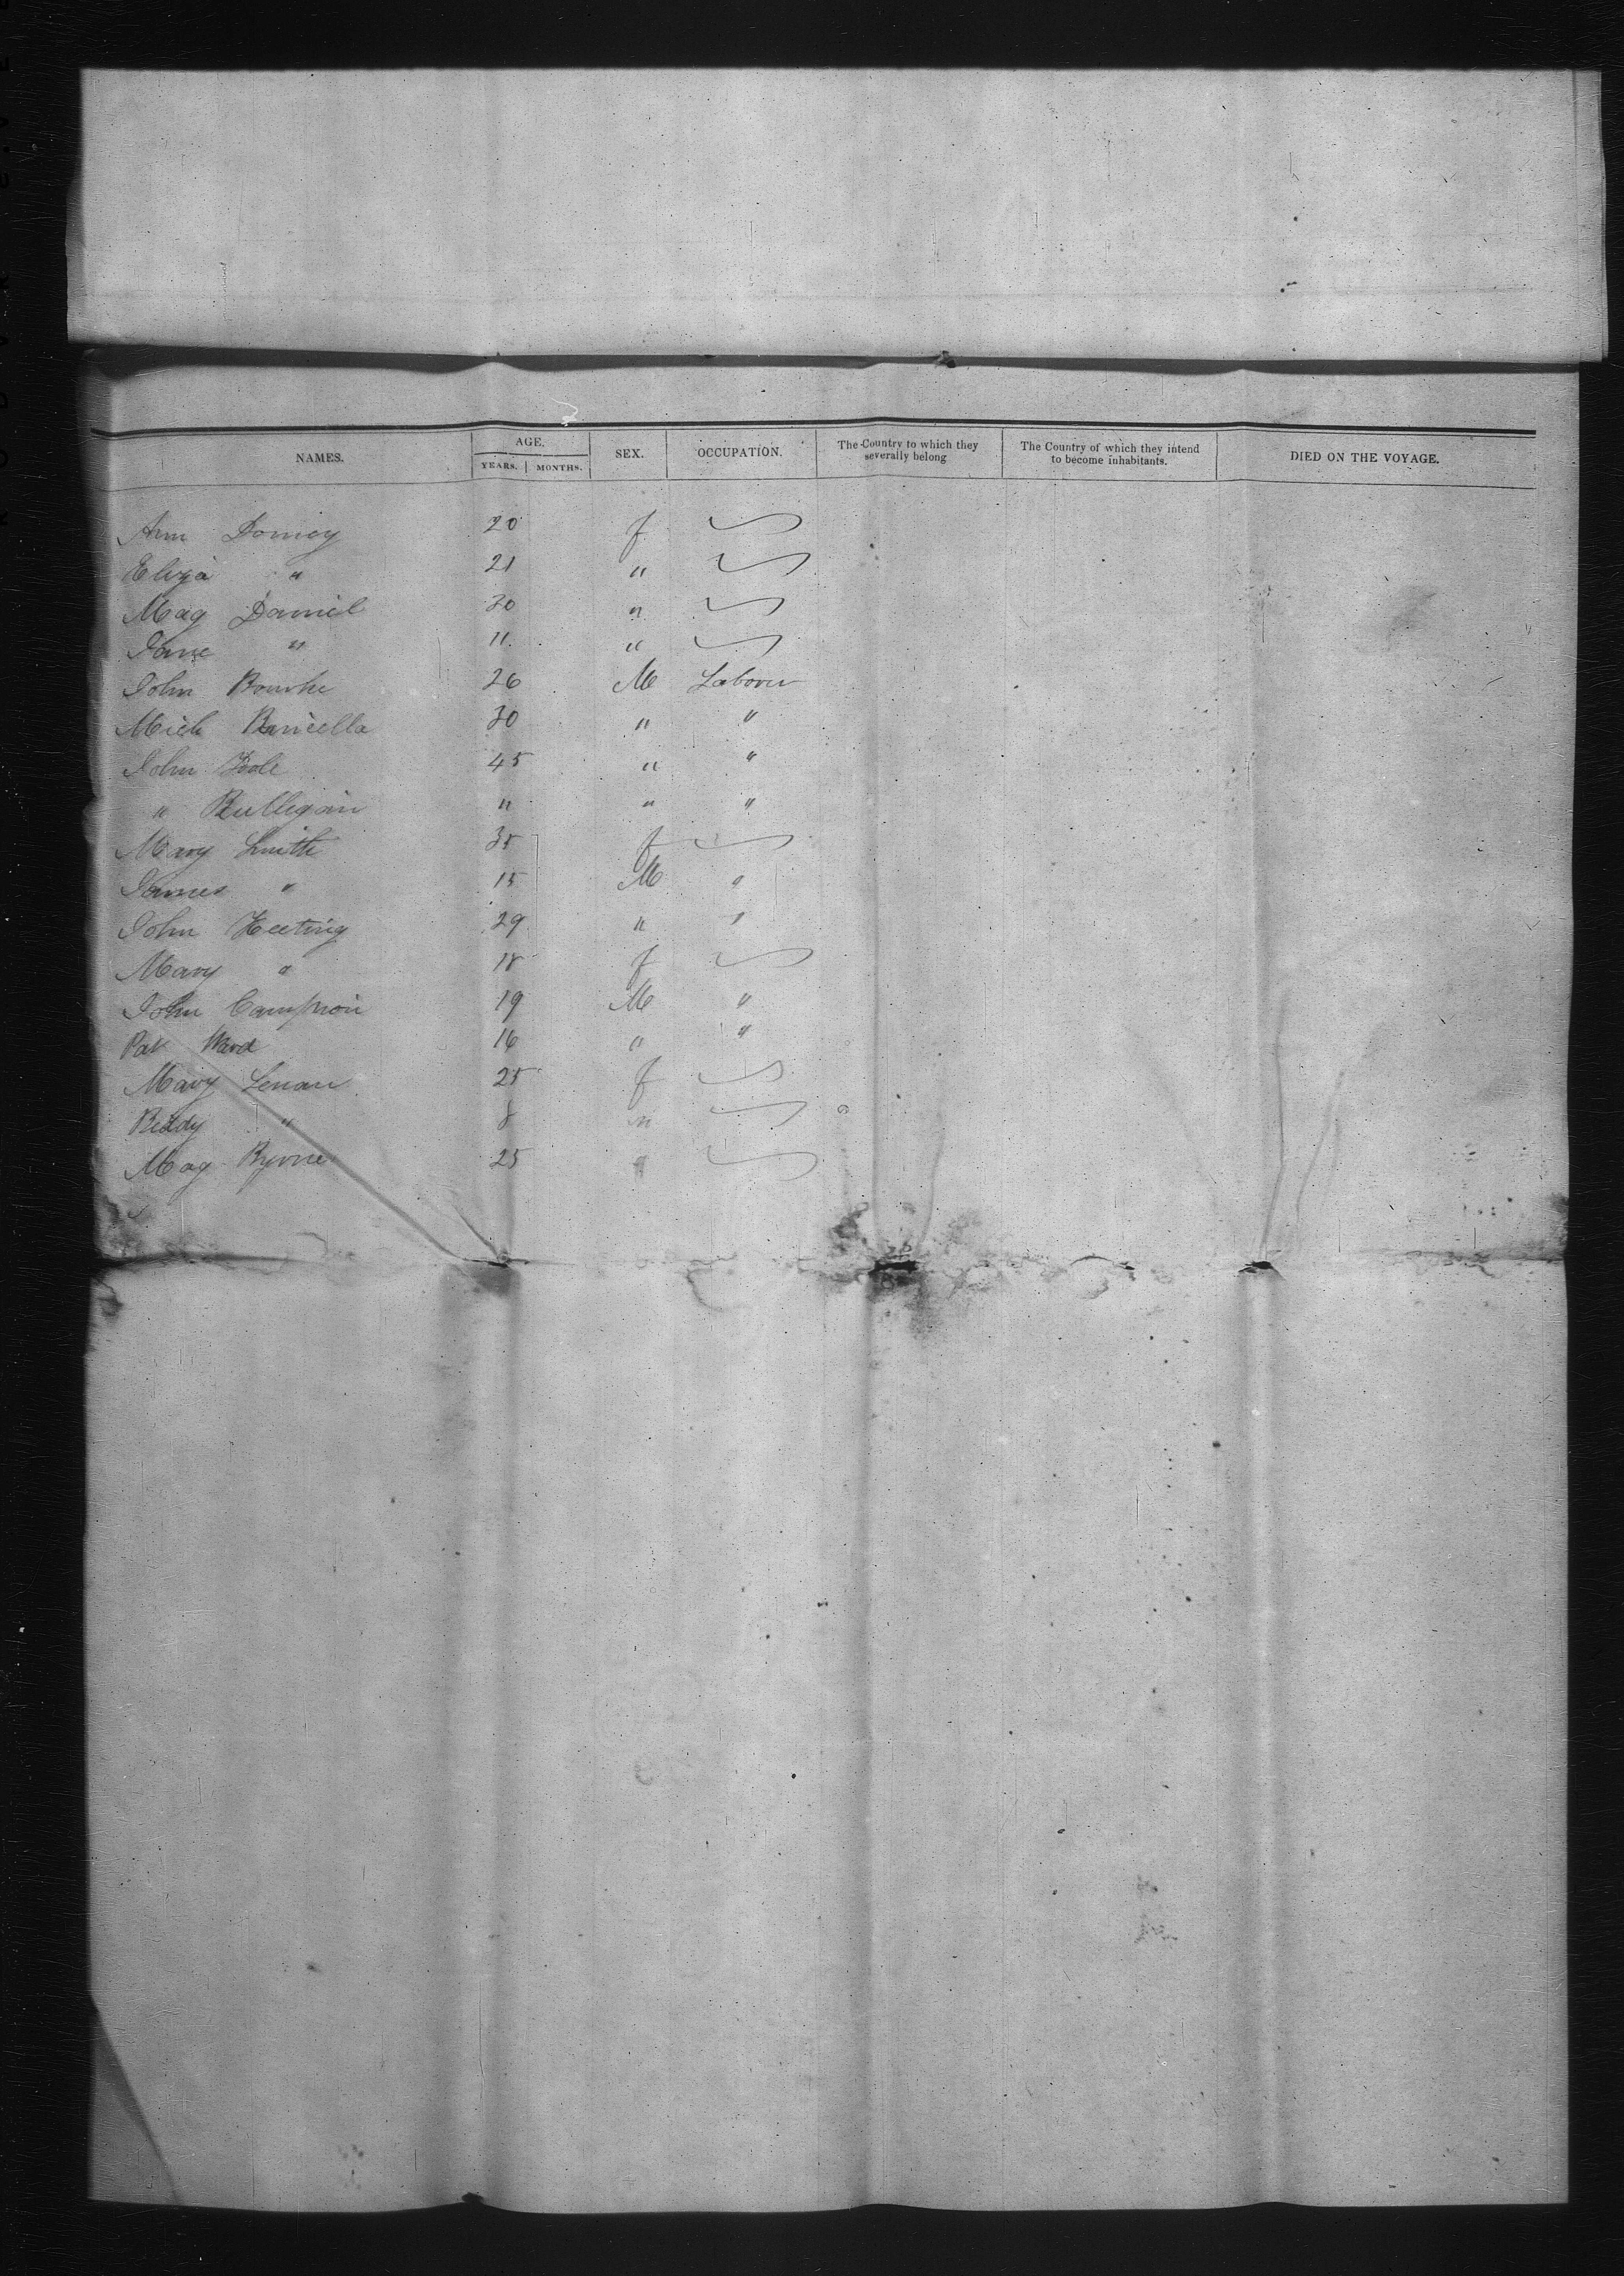 NAMES. AGE. YEARS. MONTHS. SEX. OCCUPATION. The Country to which they severally belong The Country of which they intend to become inhabitants. DIED ON THE VOYAGE.
Ann 20 f
Eliza " 21 "
Mag Daniel 30 "
Jane " 11 "
John Bourke 26 M Laborer
Mich 30 " "
John 45 " "
" " " "
Mary Smith 35 f
James " 15 M "
John Keeting 29 " "
Mary " 18 f
John Campion 19 M "
Pat Ward 16 " "
Mary Lenan 25 f
Biddy " 8 "
Mag Byrne 25 "